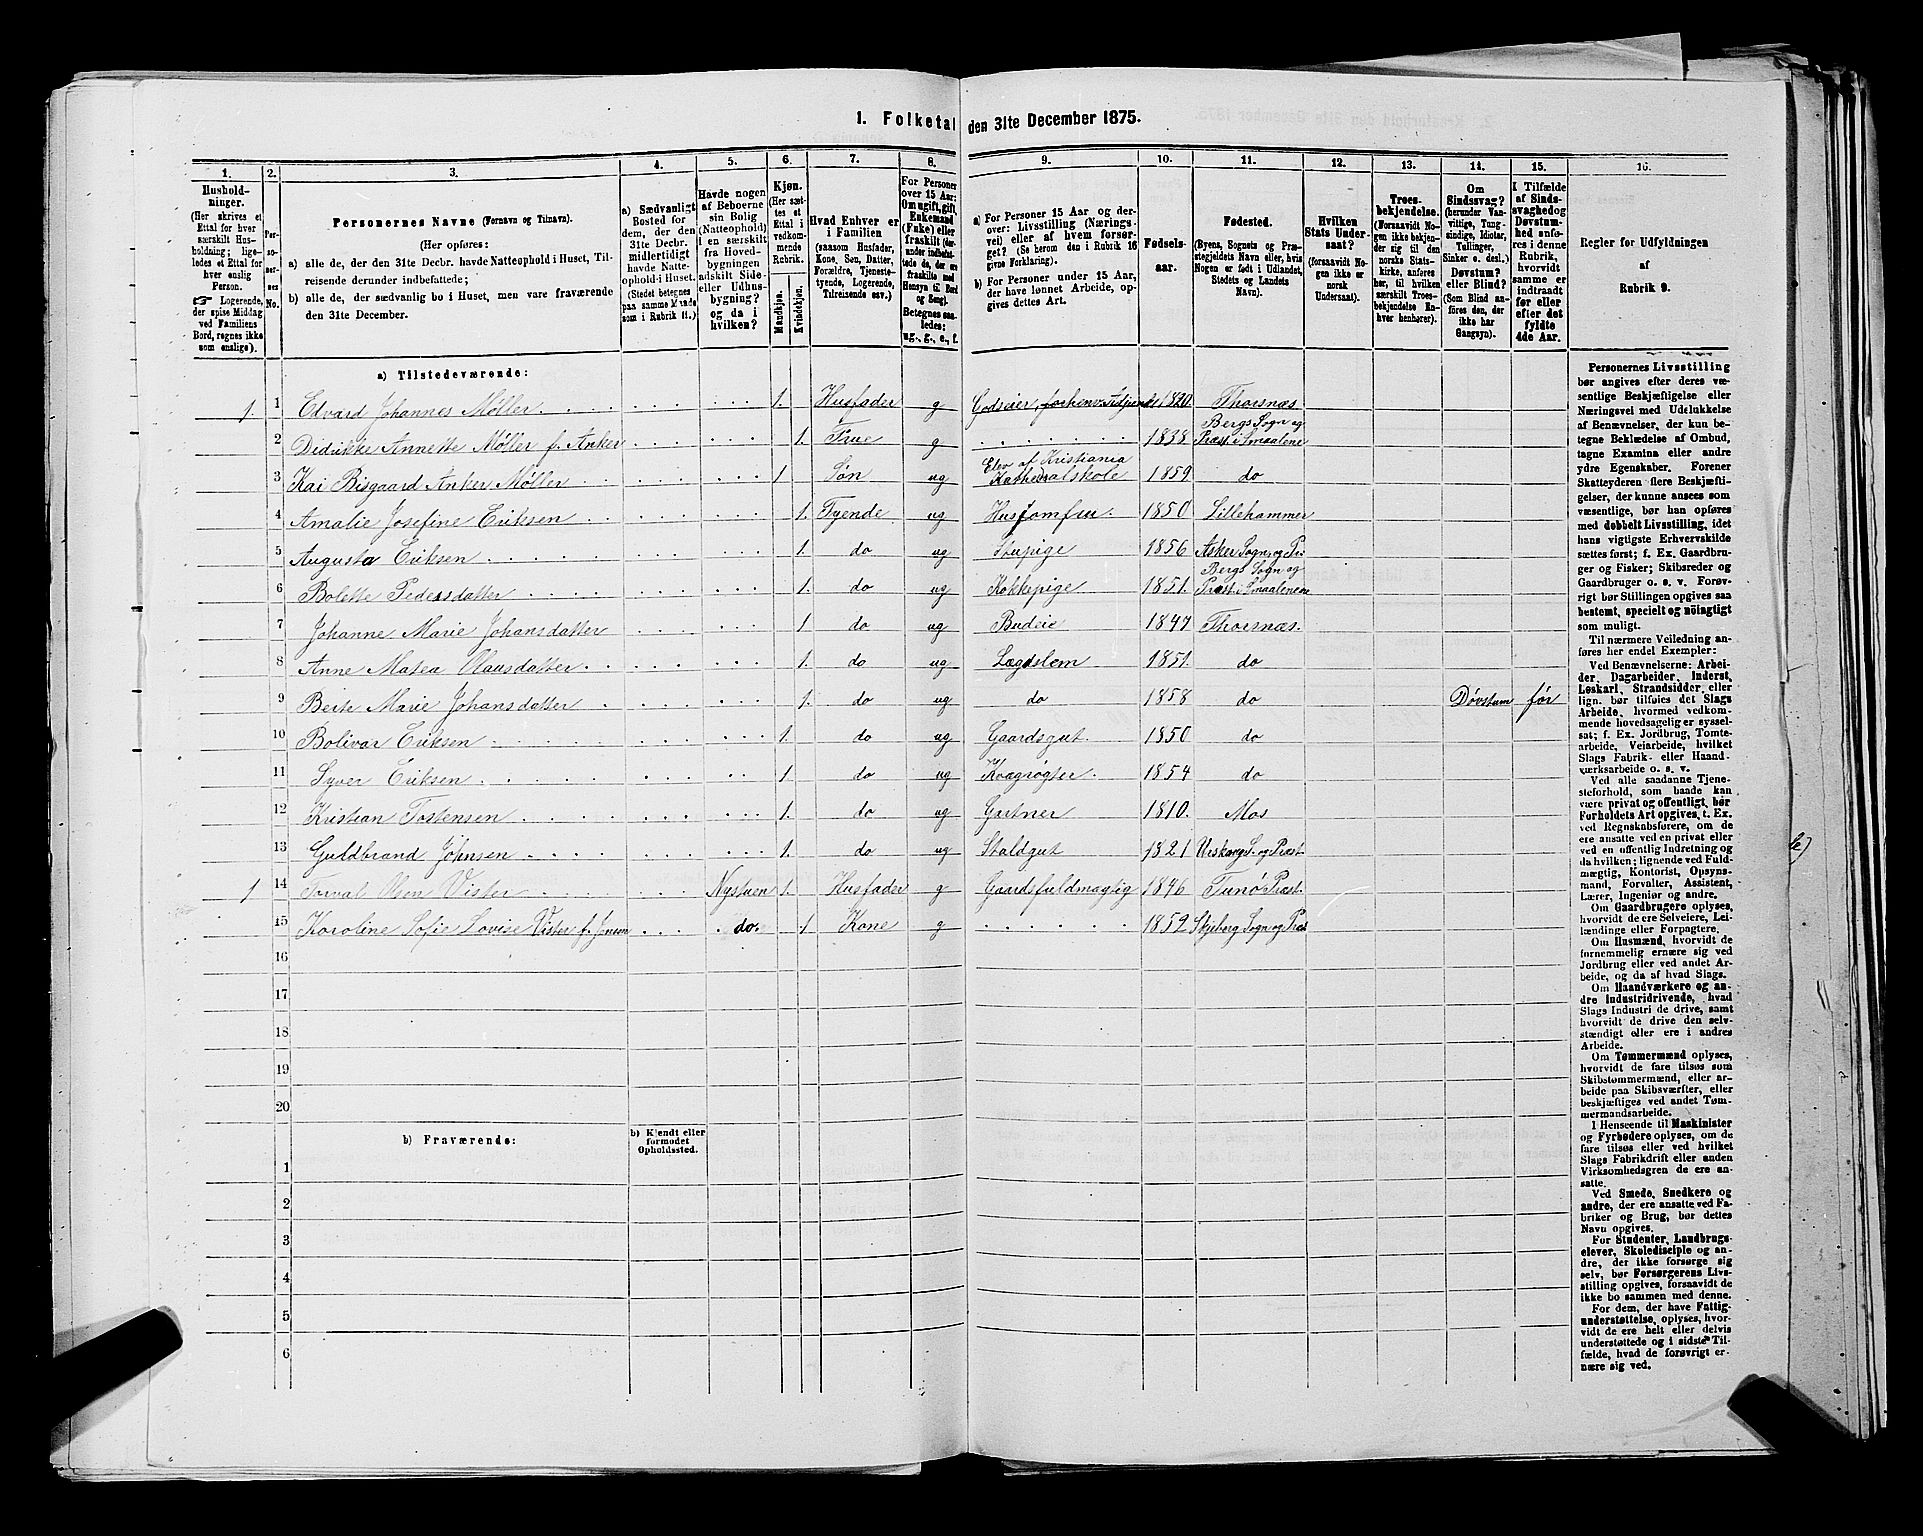 1. Folketal den 31te December 1875.
1.
Husholdninger.
(Her skrives et
Ettal for hver
særskilt Husholdning;
ligeledes et Ettal for
hver enslig
Person.
☞ Logerende,
der spise Middag
ved Familiens
Bord, regnes ikke
som enslige).
2.
Personernes
No.
3.
Personernes Navne (Fornavn og Tilnavn).
(Her opføres:
a) alle de, der den 31te Decbr. havde Natteophold i Huset, Tilreisende
derunder indbefattede;
b) alle de, der sædvanlig bo i Huset, men vare fraværende
den 31te December.
4.
a) Sædvanligt
Bosted for
dem, der den
31te Decbr.
midlertidigt
havde Natteophold
i Huset.
(Stedet betegnes
paa samme Maade
som i Rubrik 11.)
5.
Havde nogen
af Beboerne
sin Bolig
(Natteophold)
i en særskilt
fra Hovedbygningen
adskilt Side-
eller Udhusbygning?
og da i
hvilken?
6.
Kjøn.
(Her sættes
et
Ettal i
vedkommende
Rubrik.
Mandkjøn.
Kvindekjøn.
7.
Hvad Enhver er
i Familien
(saasom Husfader,
Kone, Søn, Datter,
Forældre, Tjenestetyende,
Logerende,
Tilreisende osv.)
8.
For Personer
over 15 Aar:
Om ugift, gift,
Enkemand
(Enke) eller
fraskilt
Betegnes saaledes:
ug., g., e., f.
9.
a) For Personer 15 Aar og derover:
Livsstilling (Næringsvei)
eller af hvem forsørget?
(Se herom den i Rubrik 16
givne Forklaring).
b) For Personer under 15 Aar,
der have lønnet Arbeide, opgives
dettes Art.
10.
Fødselsaar.
11.
Fødested.
(Byens, Sognets og Præstegjeldets
Navn eller, hvis
Nogen er født i Udlandet,
Stedets og Landets
Navn).
12.
Hvilken
Stats Undersaat?
(forsaavidt Nogen
ikke er
norsk
Undersaat).
13.
Troesbekjendelse.
(Forsaavidt Nogen
ikke bekjender
sig til den
norske Statskirke,
anføres
her, til hvilken
særskilt Troesbekjendelse
Enhver
henhører).
14.
Om
Sindssvag?
(herunder Vanvittige,
Tungsindige,
Idioter,
Tullinger,
Sinker o. desl.)
Døvstum?
eller Blind?
(Som Blind anføres
den, der
ikke har
Gangsyn).
15.
I Tilfælde
af Sindssvaghed
og
Døvstumhed
anføres
i denne
Rubrik,
hvorvidt
samme er
indtraadt
før eller
efter det
fyldte
4de Aar.
16.
Regler for Udfyldningen
af
Rubrik 9.
a) Tilstedeværende:
1. 1 Edvard Johannes Møller 1. Husfader g Godseier, forhenv. Adjunkt 1820 Thorsnæs
2 Didrikke Annette Møller f. Anker 1. Frue g 1838 Bergs Sogn og Præst. i Smaalene
3 Kai Bisgaard Anker Møller 1 Søn ug Elev af Kristiania Kathedralskole 1859 do
4 Amalie Josefine Eriksen 1. Tyende ug Husjomfru. 1850 Lillehammer
5 Augusta Eriksen 1. do ug Stupige 1856 Asker Sogn og Pr.
6 Bolette Pedersdatter 1. do ug Kokkepige 1851. Bergs Sogn og Præst. i Smaalenene
7 Johanne Marie Johansdatter 1 do ug Budeie 1847 Thorsnæs.
8 Anne Matea Olausdatter 1. do ug Lægdslem 1851. do
9 Berte Marie Johansdatter 1. do ug do 1858 do Døvstum før
10 Bolivar Eriksen 1. do ug Gaardsgut. 1850 do
11 Syver Eriksen 1. do ug Kvægrøgter. 1854 do
12 Kristian Tostensen 1. do ug Gartner 1810. Mos
13 Guldbrand Johnsen 1. do ug Staldgut 1821 Urskougs S. og Præst.
1 14 Torval Olsen Vister Nystuen 1. Husfader g Gaardsfuldmægtig 1846 Tunø Præst.
15 Karoline Sofie Lovise Vister f. Jensen do. 1 Kone g 1852 Skjeberg Sogn og Præst
16
17
18
19
20
b) Fraværende:
b) Kjendt eller
formodet
Opholdssted.
1
2
3
4
5
6
Personernes Livsstilling
bør angives efter deres væsentlige
Beskjæftigelse eller
Næringsvei med Udelukkelse
af Benævnelser, der kun betegne
Beklædelse af Ombud,
tagne Examina eller andre
ydre Egenskaber. Forener
Skatteyderen flere Beskjæftigelser,
der kunne ansees som
væsentlige, bør han opføres
med dobbelt Livsstilling, idet
hans vigtigste Erhvervskilde
sættes først; f. Ex. Gaardbruger
og Fisker; Skibsreder og
Gaardbruger o. s. v. Forøvrigt
bør Stillingen opgives saa
bestemt, specielt og nøiagtigt
som muligt.
Til nærmere Veiledning anføres
her endel Exempler:
Ved Benævnelserne: Arbeider,
Dagarbeider, Inderst,
Løskarl, Strandsidder, eller
lign. bør tilføies det Slags
Arbeide, hvormed vedkommende
hovedsagelig er sysselsat;
f. Ex. Jordbrug, Tomtearbeide,
Veiarbeide, hvilket
Slags Fabrik- eller Haandværksarbeide
o. s. v.
Ved alle saadanne Tjenesteforhold,
som baade kan
være privat og offentligt, bør
Forholdets Art opgives, f. Ex.
ved Regnskabsførere, om de
ere ansatte ved en privat eller
ved en offentlig Indretning og
da hvilken; lignende ved Fuldmægtig,
Kontorist, Opsynsmand,
Forvalter, Assistent,
Lærer, Ingeniør og andre.
Om Gaardbrugere oplyses,
hvorvidt de ere Selveiere, Leilændinge
eller Forpagtere.
Om Husmænd, hvorvidt de
fornemmelig ernære sig ved
Jordbrug eller ved andet Arbeide,
og da af hvad Slags.
Om Haandværkere og andre
Industridrivende, hvad
Slags Industri de drive, samt
hvorvidt de drive den selvstændigt
eller ere i andres
Arbeide.
Om Tømmermænd oplyses,
hvorvidt de fare tilsøs som
Skibstømmermænd, eller arbeide
paa Skibsværfter, eller
beskjæftiges ved andet Tømmermandsarbeide.
I Henseende til Maskinister
og Fyrbødere oplyses, om de
fare tilsøs eller ved hvilket
Slags Fabrikdrift eller anden
Virksomhedsgren de ere ansatte.
Ved Smede, Snedkere og
andre, der ere ansatte ved Fabriker
og Brug, bør dettes
Navn opgives.
For Studenter, Landbrugselever,
Skoledisciple og andre,
der ikke forsørge sig
selv, bør Forsørgerens Livsstilling
opgives, forsaavidt de
ikke bo sammen med denne.
For dem, der have Fattigunderstøttelse,
oplyses, hvorvidt
de ere helt eller delvis
understøttede og i sidste Tilfælde,
hvad de forøvrigt ernære
sig ved.